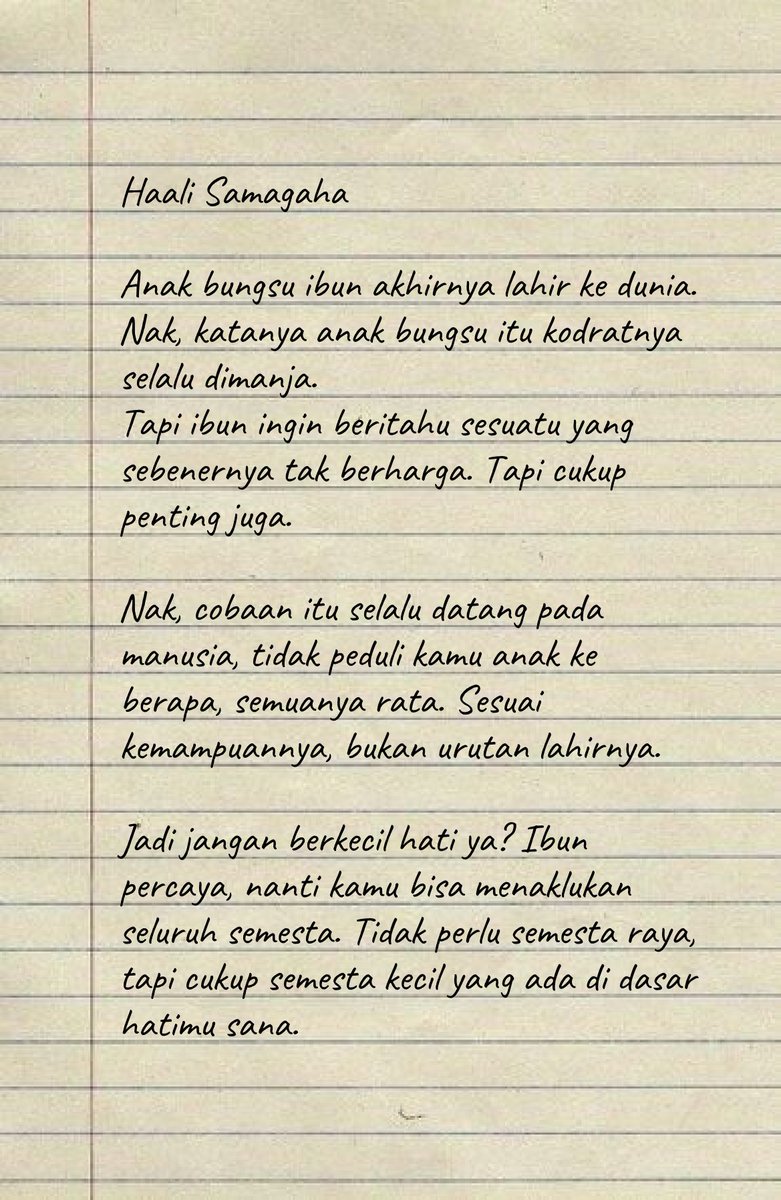 Haali Samagaha
Anak bungsu ibun akhirnya lahir ke dunia.
Nak, katanya anak bungsu itu kodratnya
selalu dimanja.
Tapi ibun ingin beritahu sesuatu yang
sebenernya tak berharga. Tapi cukup
penting juga.
Nak, cobaan itu selalu datang pada
manusia, tidak peduli kamu anak ke
berapa, semuanya rata. Sesuai
kemampuannya, bukan urutan lahirnya.
Jadi jangan berkecil hati ya? Ibun
percaya, nanti kamu bisa menaklukan
seluruh semesta. Tidak perlu semesta raya,
tapi cukup semesta kecil yang ada di dasar
hatimu sana.